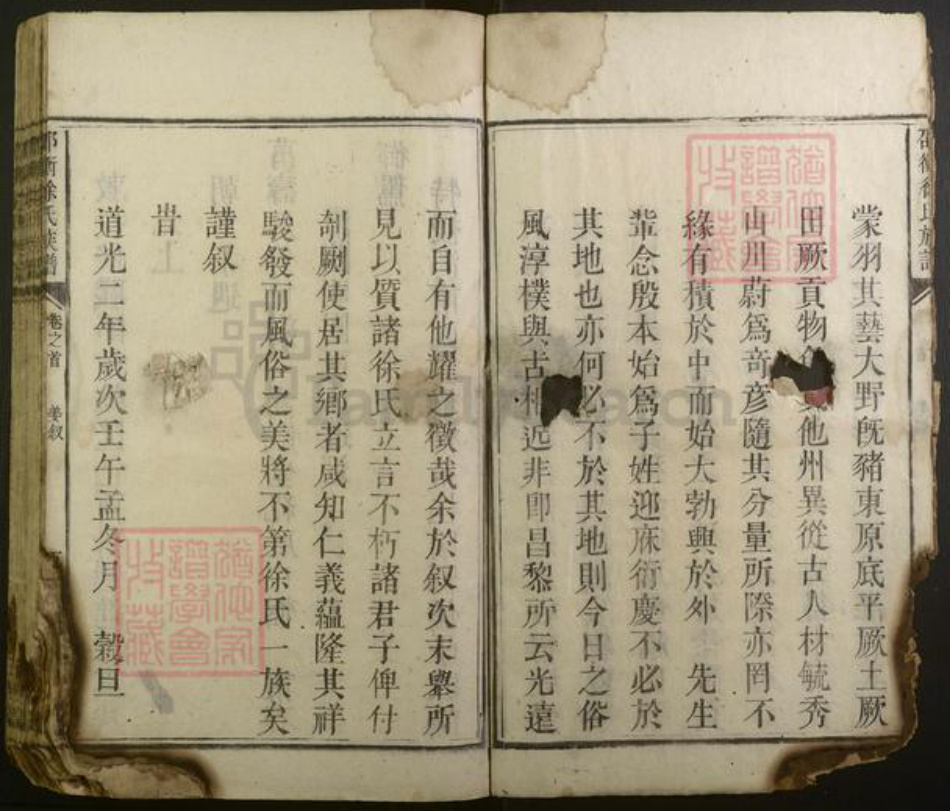 蒙羽其藝大野旣豬東原底平厥土厥
田厥貢物他州異從古人材毓秀
山川蔚爲竒彥隨其分量所際亦罔不
緣有積於中而始大勃興於外 先生
輩念殷本始爲子姓迎庥衍慶不必於
其地也亦何必不於其地則今日之俗
風淳樸與古相近非卽昌黎所云光遠
而自有他耀之徵哉余於叙次末舉所
見以質諸徐氏立言不朽諸君子俾付
剞劂使居其鄕者咸知仁義蘊隆其祥
駿發而風俗之美將不第徐氏一族矣
謹叙
旹
道光二年歲次壬午孟冬月 穀旦
邵衡徐氏族譜
卷之首
姜叙